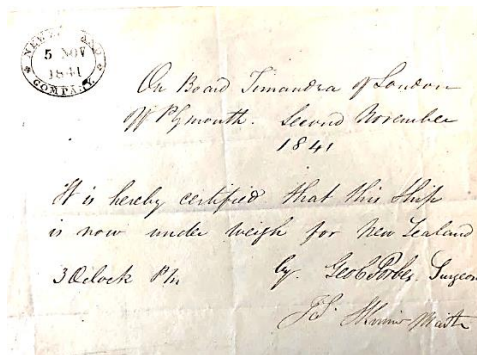 NEW ZEALAND
5 NOV
1841
COMPANY
On Board Timandra of London
off Plymouth. Second November
1841
It is hereby certified that this Ship
is now under weigh for New Zealand
3 OClock Pm by. Geo C Forbes Surgeon